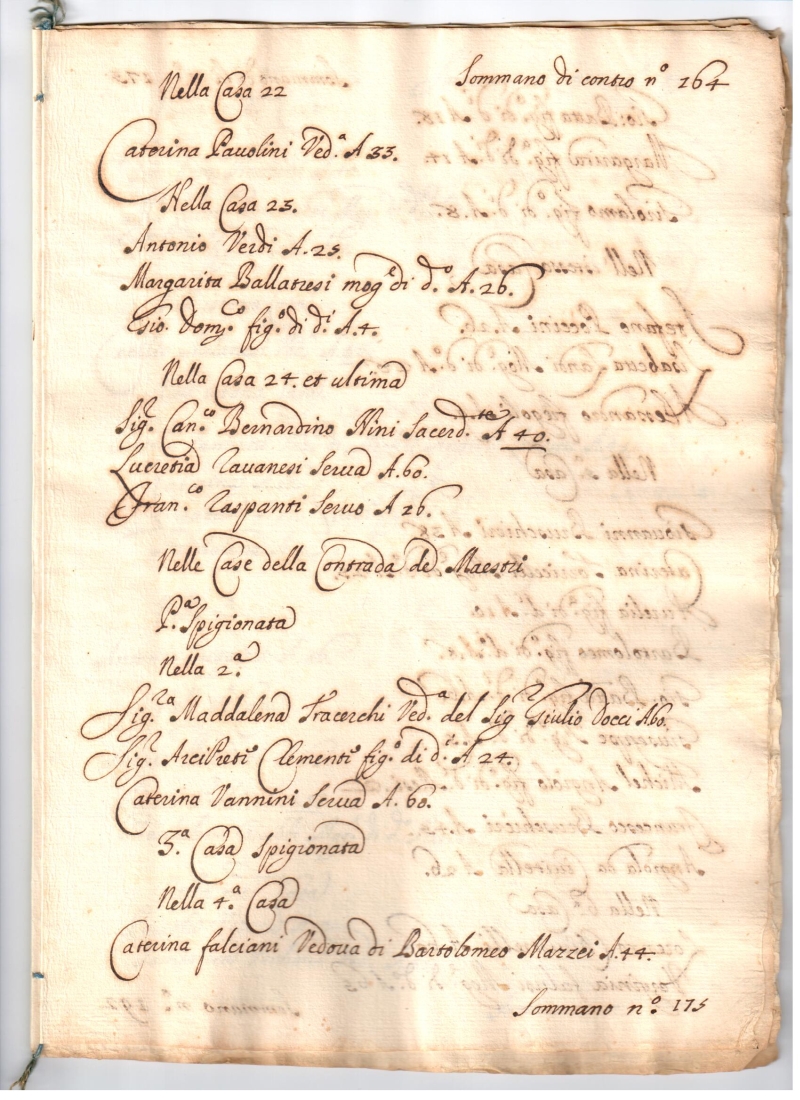 Sommano di contro n.º 164
Nella Casa 22
Caterina Pavolini Ved.ª A 33.
Nella Casa 23.
Antonio Verdi A. 25.
Margarita Ballatresi mog.e di d.º A. 26.
Gio. Dom.co fig.º di d.i A. 4.
Nella Casa 24. et ultima
Sig.r Can.co Bernardino Nini Sacerd.te A 40.
Lucretia Tavanesi Serva A. 60.
Fran.co Raspanti Servo A 26.
Nelle Case della Contrada de Maestri
P.ª Spigionata
Nella 2.ª
Sig.ra Maddalena Fracerchi Ved.ª del Sig.r Giulio Docci A 60.
Sig.r Clementi fig.º di d.i A 24.
Caterina Vannini Serva A. 60.
3.ª Casa Spigionata
Nella 4.ª Casa
Caterina falciani Vedova di Bartolomeo Mazzei A. 44.
Sommano n.º 175